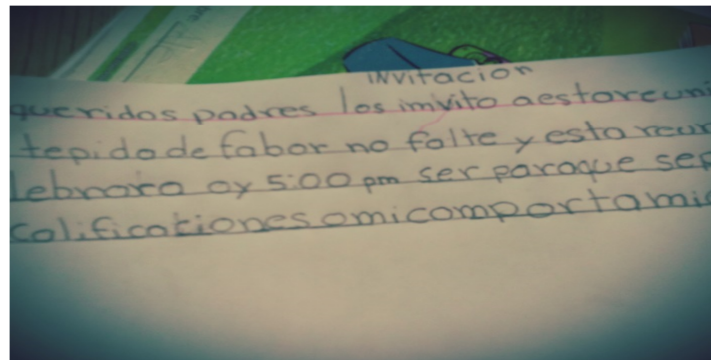 INVitacion
queridos padres los imvito aestareuni
tepido de fabor no falte y esta reur
lebrara oy 5:00 pm ser paraque sep
calificationes omicomportamie